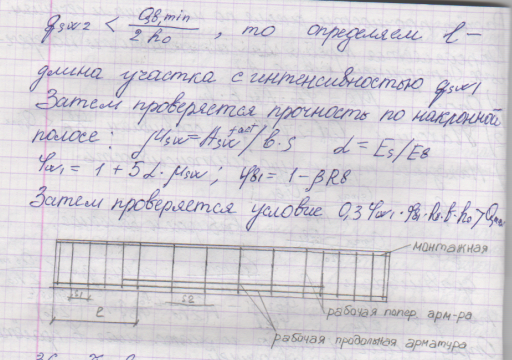 q_sw2 < Q_b,min / 2h₀ , то определяем l –
длина участка с интенсивностью q_sw1
Затем проверяется прочность по наклонной
полосе: μ_sw = A_sw^факт / b·s   α = E_s/E_b
φ_w1 = 1 + 5α·μ_sw ; φ_b1 = 1 – βR_b
Затем проверяется условие 0,3φ_w1·φ_b1·R_b·b·h₀ > Q_max
монтажная
S1
S2
рабочая попер. арм-ра
l
рабочая продольная арматура